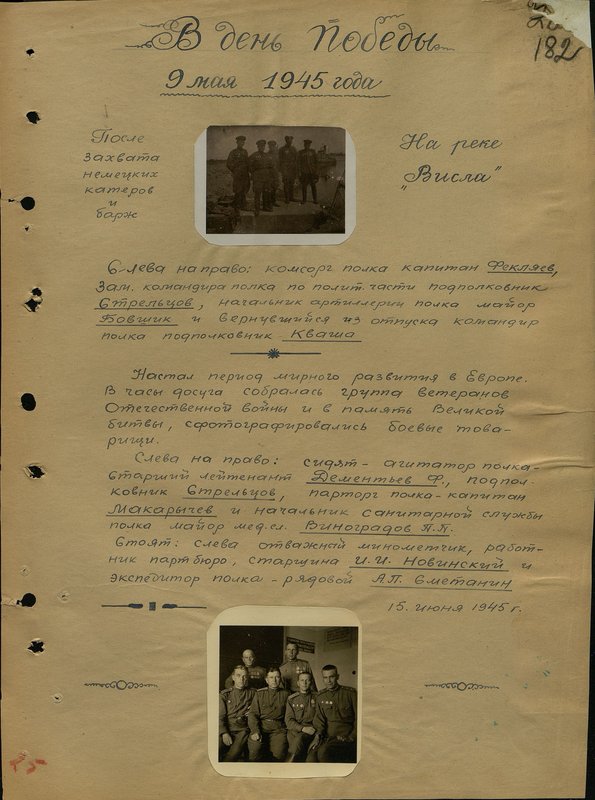 182
В день Победы
9 мая 1945 года
После
захвата
немецких
катеров
и
барж
На реке
„Висла"
Слева направо: комсорг полка капитан Фекляев,
Зам. командира полка по полит части подполковник
Стрельцов, начальник артиллерии полка майор
Бовшик и вернувшийся из отпуска командир
полка подполковник Кваша
Настал период мирного развития в Европе.
В часы досуга собралась группа ветеранов
Отечественной войны и в память Великой
битвы, сфотографировались боевые това-
рищи.
Слева на право: сидят - агитатор полка-
Старший лейтенант Дементьев Ф., подпол-
ковник Стрельцов, парторг полка-капитан
Макарычев и начальник санитарной службы
полка майор мед.сл. Виноградов П.П.
Стоят: слева отважный минометчик, работ-
ник партбюро, старшина И.И. Новинский и
экспедитор полка - рядовой А.П. Сметанин
15. июня 1945 г.